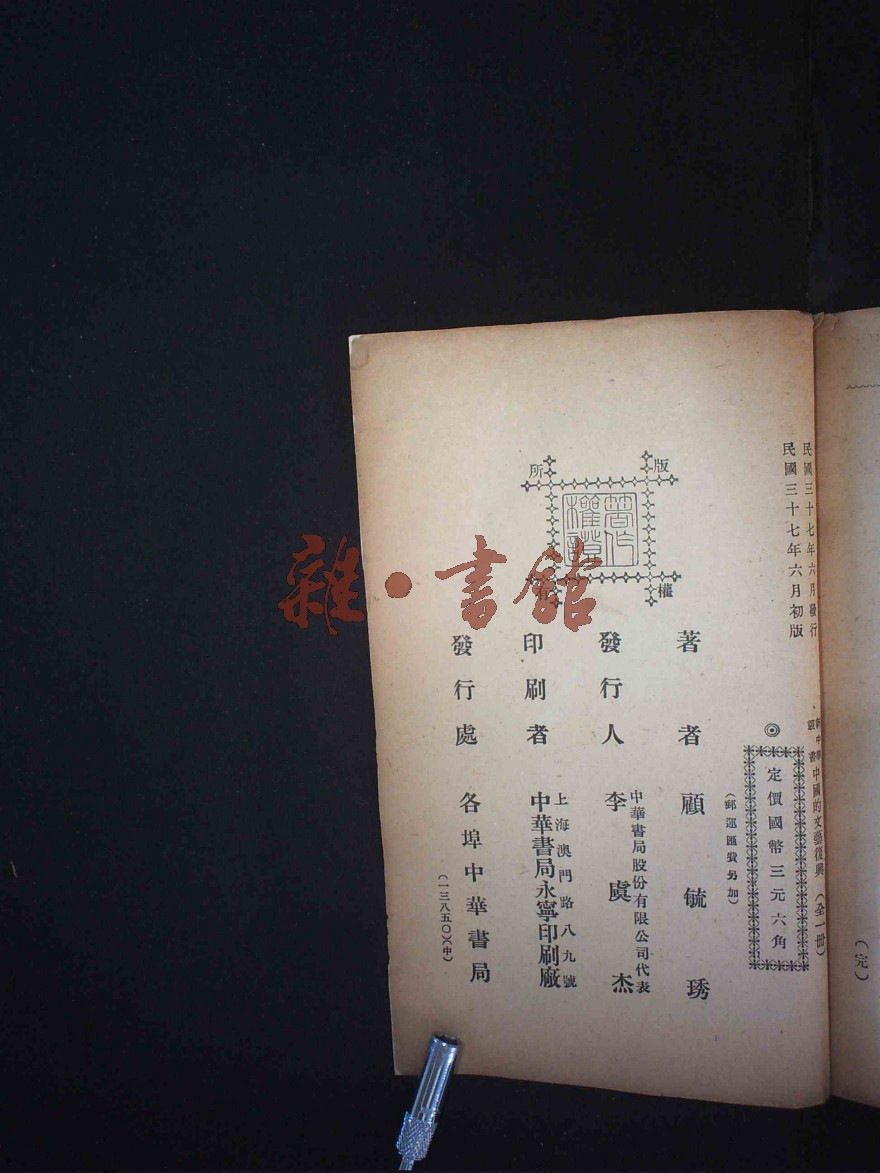 (完)
民國三十七年六月發行
民國三十七年六月初版
新中華叢書 中國的文藝復興 (全一冊)
◎
定價國幣三元六角
(郵運匯費另加)
版權所有
著作權證
著者 顧毓琇
發行人 中華書局股份有限公司代表
李虞杰
印刷者 上海澳門路八九號
中華書局永寧印刷廠
發行處 各埠中華書局
(一三八五〇)(中)
雜·書館